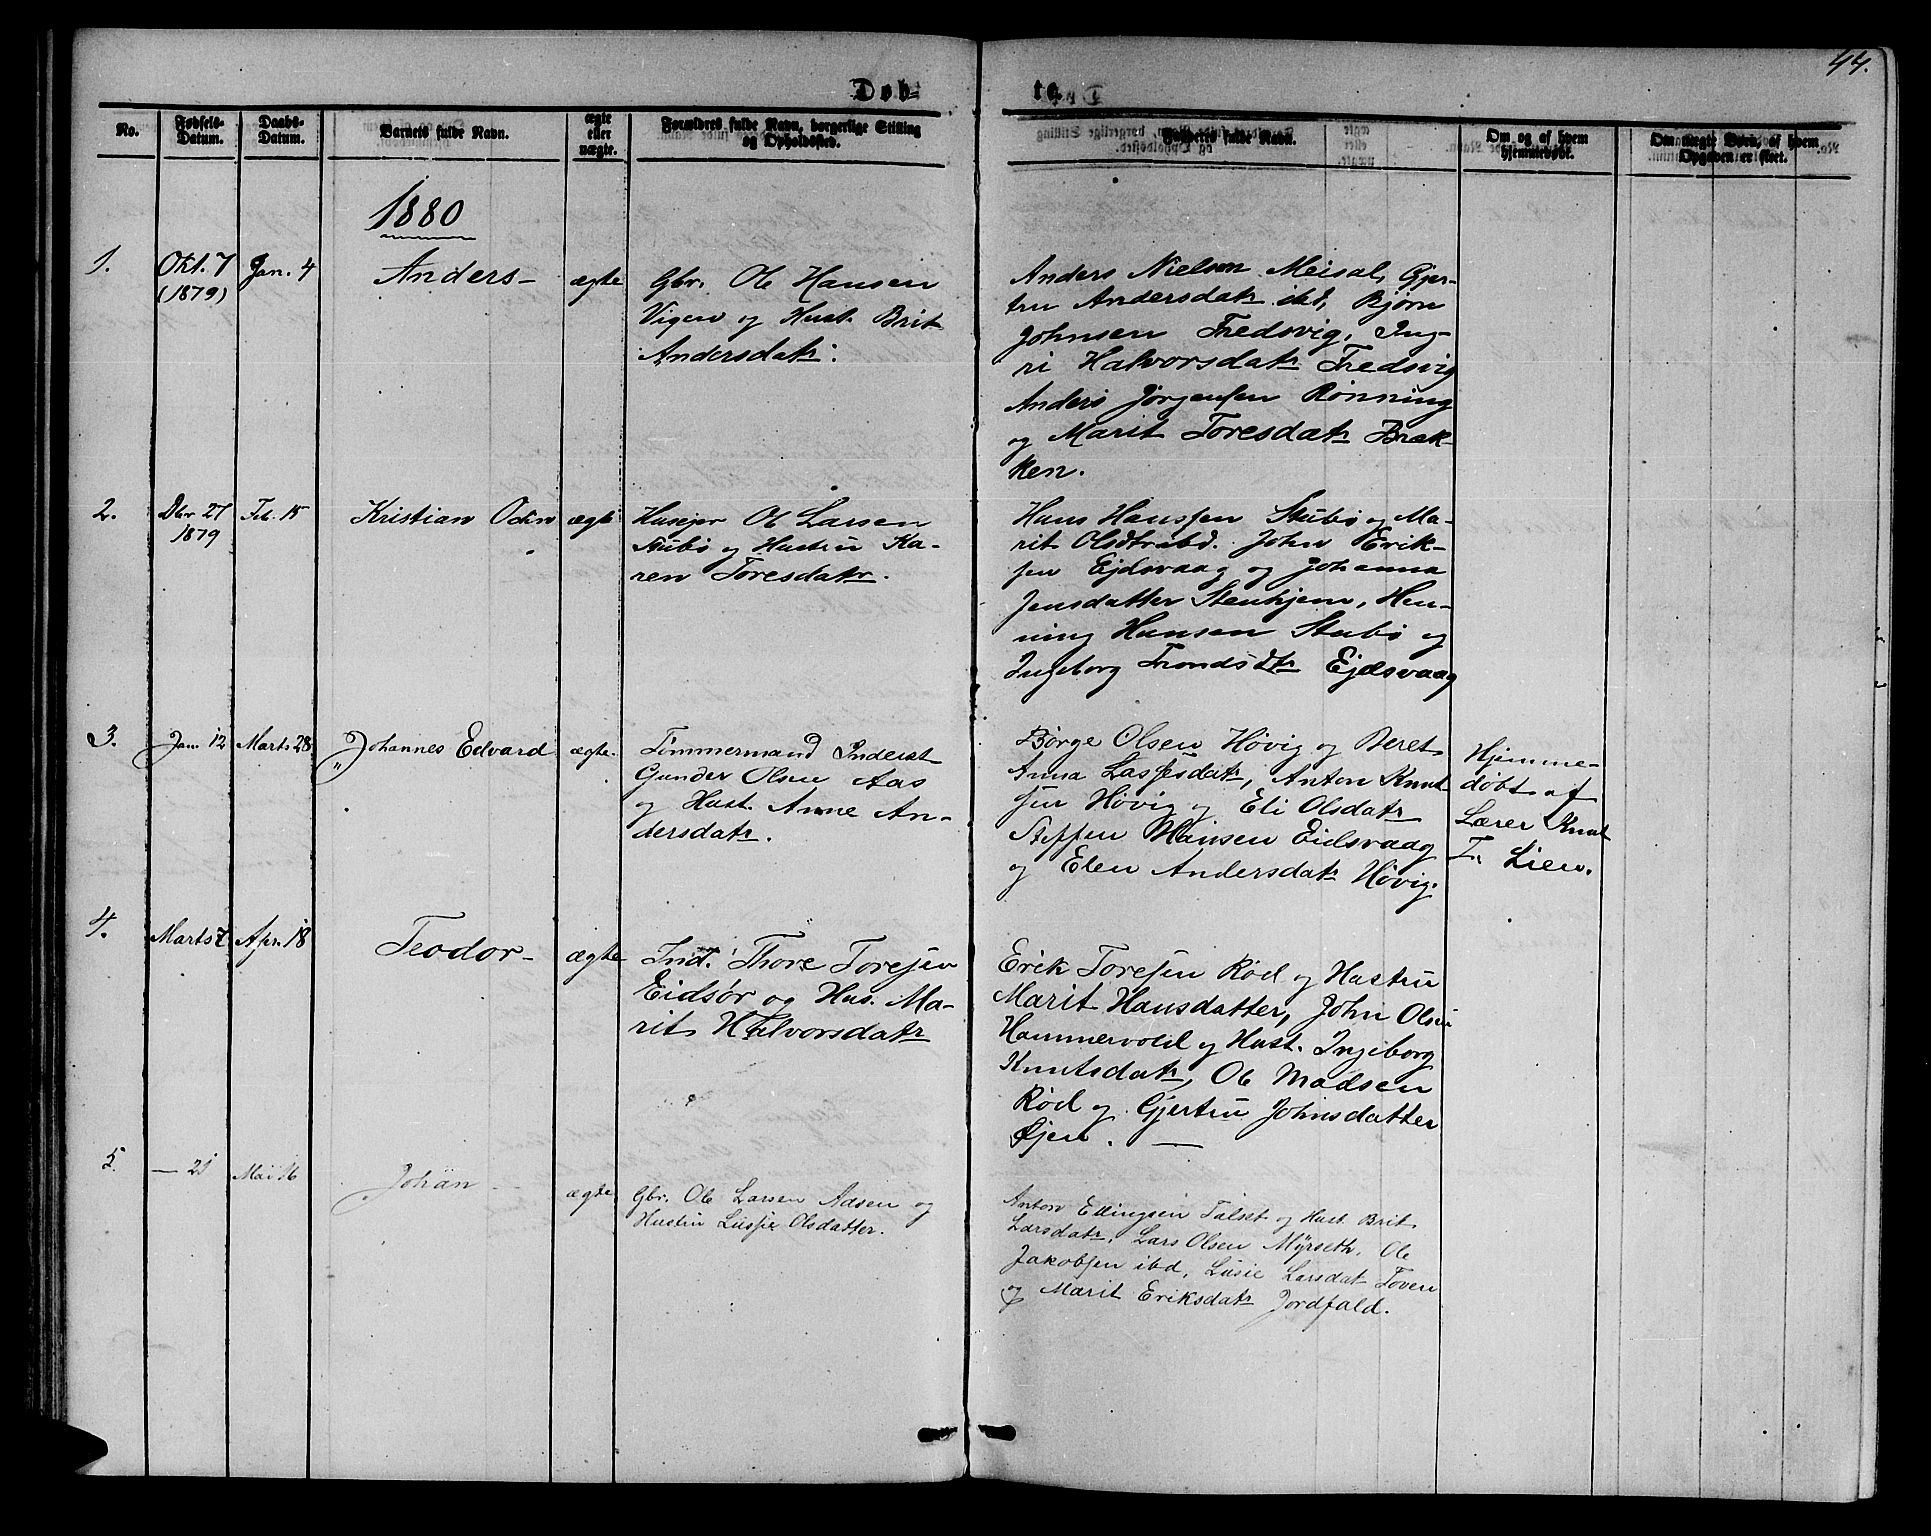 44.
Døb-
te.
No.
Fødsels-
Datum.
Daabs-
Datum.
Barnets fulde Navn.
ægte
eller
uægte.
Forældres fulde Navn, borgerlige Stilling
og Opholdssted.
Fadderes fulde Navn.
Om og af hvem
hjemmedøbt.
Om uægte Børn, af hvem
Opgaven er skeet.
1880
1.
Okt. 7
(1879)
Jan. 4
Anders
ægte
Gbr. Ole Hansen
Vigen og Hust. Brit
Andersdatr.
Anders Nielsen Meisal, Gjer-
tru Andersdatr ibd, Bjørn
Johnsen Fredsvig, Ing-
ri Halvorsdatr Fredsvig
Anders Jørgensen Rønning
og Marit Toresdatr Bræk-
ken.
2.
Dbr 27
1879
Feb. 15
Kristian Odin
ægte
Husejer Ole Larsen
Stubø og Hustru Ka-
ren Toresdatr.
Hans Hanssen Stubø og Ma-
rit Olsdtr ibd. John Erik-
sen Ejdsvaag og Johanna
Jensdatter Stenhjem, Hen-
ning Hansen Stubø og
Ingeborg Tronds dtr Ejdsvaag
3.
Jan. 12
Marts 28
Johannes Edvard
ægte.
Tømmermand Inderst
Gunder Olsen Aas
og Hust. Anne An-
dersdatr.
Børge Olsen Høvig og Beret
Anna Lassesdatr, Anton Knut
sen Høvig og Eli Olsdatr
Steffen Hansen Eidsvaag
og Elen Andersdatr Høvig.
Hjemme-
døbt af
Lærer Knut
T. Lien.
4.
Marts 7
Apr. 18
Teodor
ægte
Ind. Thore Toresen
Eidsør og Hus. Ma-
rit Halvorsdatr
Erik Toresen Rød og Hustru
Marit Hansdatter, John Olsen
Hammervold og Hust. Ingeborg
Knutsdatr, Ole Madsen
Rød og Gjertru Johnsdatter
Øjen.
5.
— 21
Mai 16
Johan
ægte
Gbr. Ole Larsen Aasen og
Hustru Lussie Olsdatter.
Anton Ellingsen Talset og Hust. Brit
Larsdatr, Lars Olsen Myrseth, Ole
Jakobsen ibd, Lusie Larsdatr Toven
og Marit Eriksdatr Jordfald.